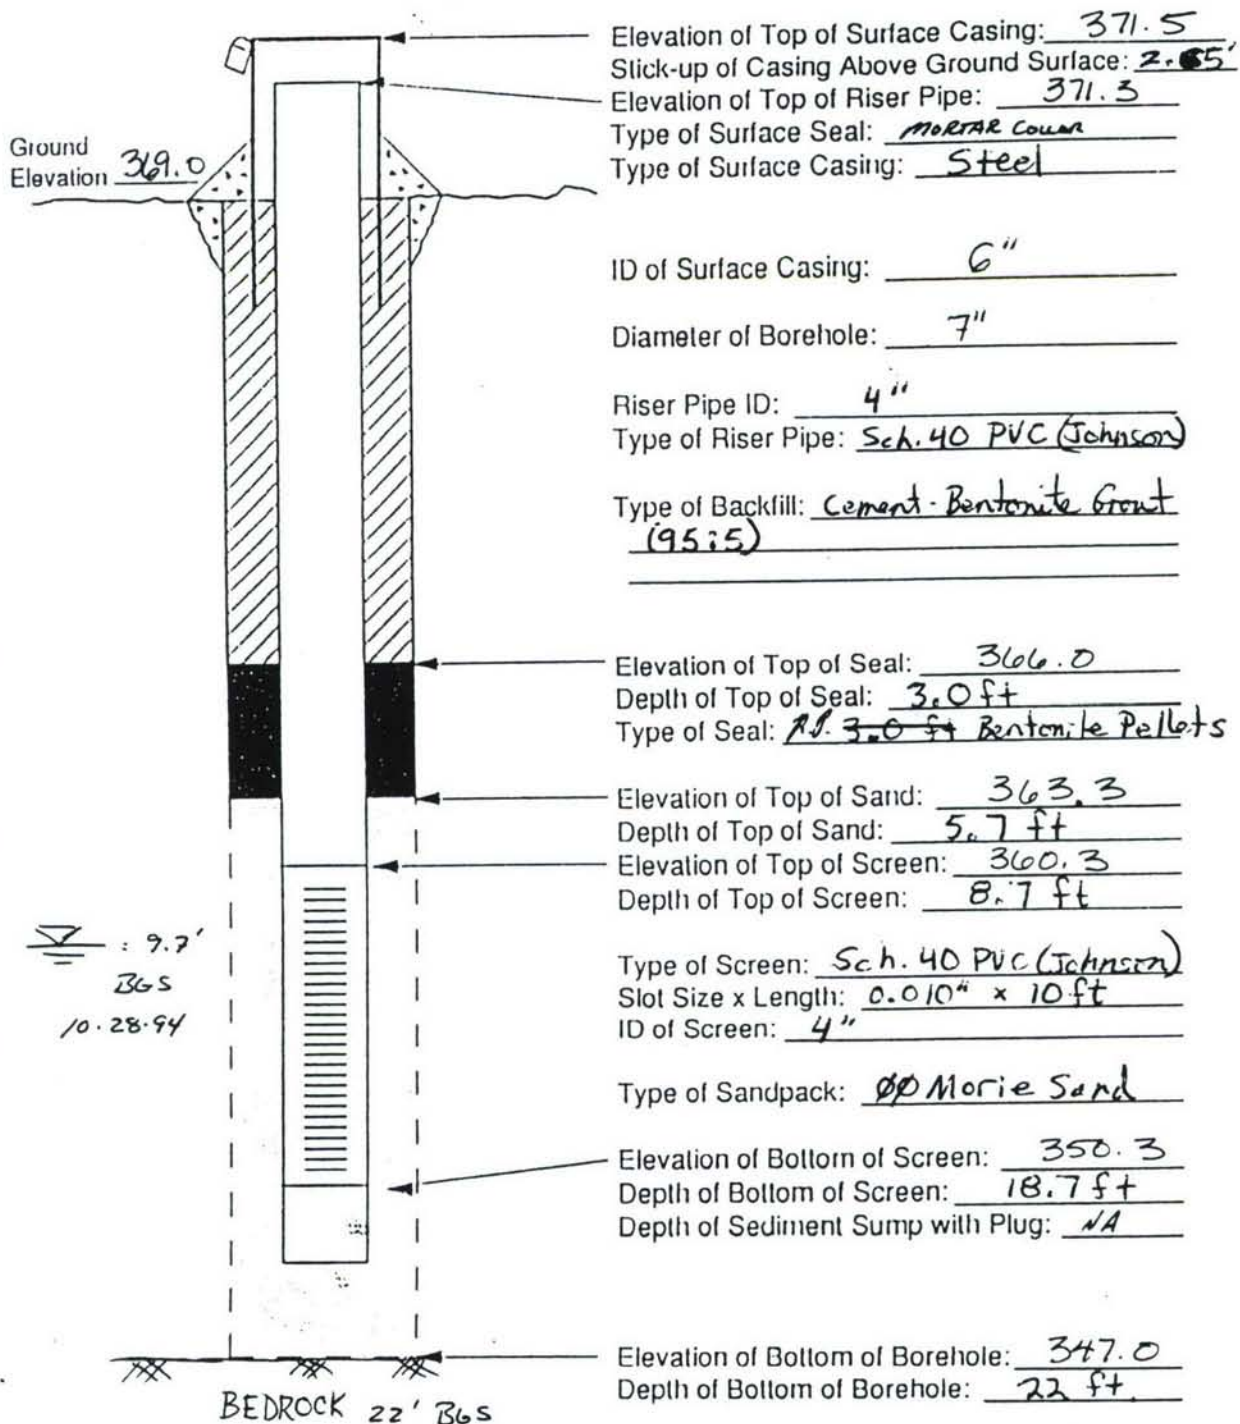 Elevation of Top of Surface Casing: 371.5
Stick-up of Casing Above Ground Surface: 2. 5'
Elevation of Top of Riser Pipe: 371.3
Type of Surface Seal: MORTAR COLLAR
Type of Surface Casing: Steel
Ground
Elevation 369.0
ID of Surface Casing: 6"
Diameter of Borehole: 7"
Riser Pipe ID: 4"
Type of Riser Pipe: Sch. 40 PVC (Johnson)
Type of Backfill: Cement-Bentonite Grout
(95:5)
Elevation of Top of Seal: 366.0
Depth of Top of Seal: 3.0 ft
Type of Seal: 3.0 ft Bentonite Pellets
Elevation of Top of Sand: 363.3
Depth of Top of Sand: 5.7 ft
Elevation of Top of Screen: 360.3
Depth of Top of Screen: 8.7 ft
: 9.7'
BGS
10.28.94
Type of Screen: Sch. 40 PVC (Johnson)
Slot Size x Length: 0.010" x 10 ft
ID of Screen: 4"
Type of Sandpack: ØØ Morie Sand
Elevation of Bottom of Screen: 350.3
Depth of Bottom of Screen: 18.7 ft
Depth of Sediment Sump with Plug: NA
Elevation of Bottom of Borehole: 347.0
Depth of Bottom of Borehole: 22 ft.
BEDROCK 22' BGS